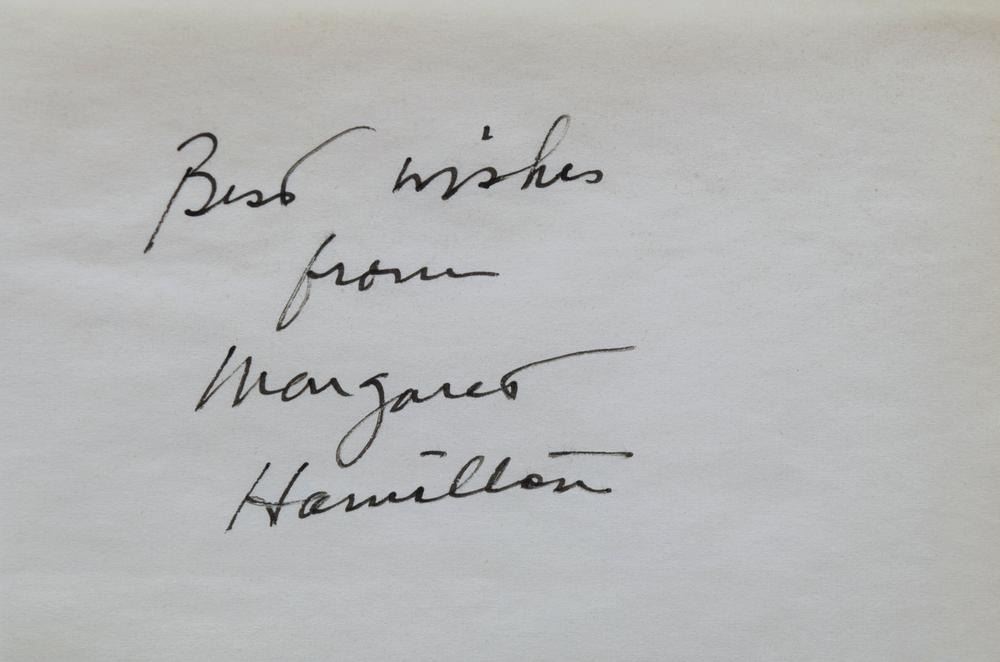 Best wishes
from
Margaret
Hamilton